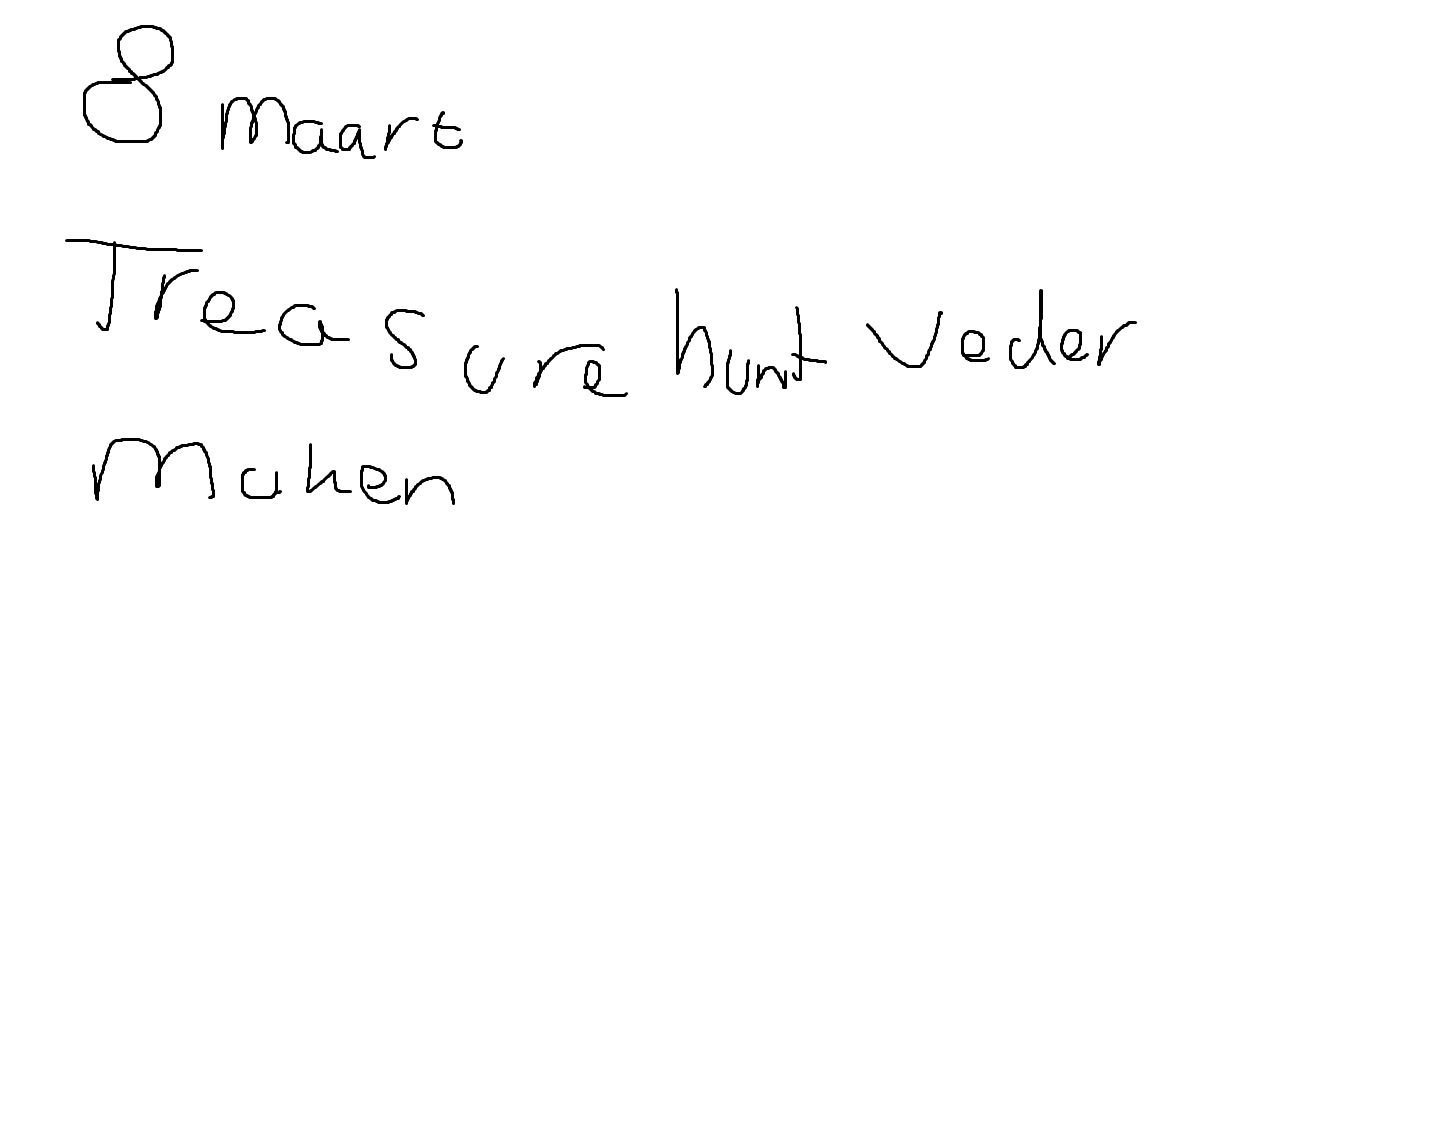 8 maart
Treasure hunt veder
maken